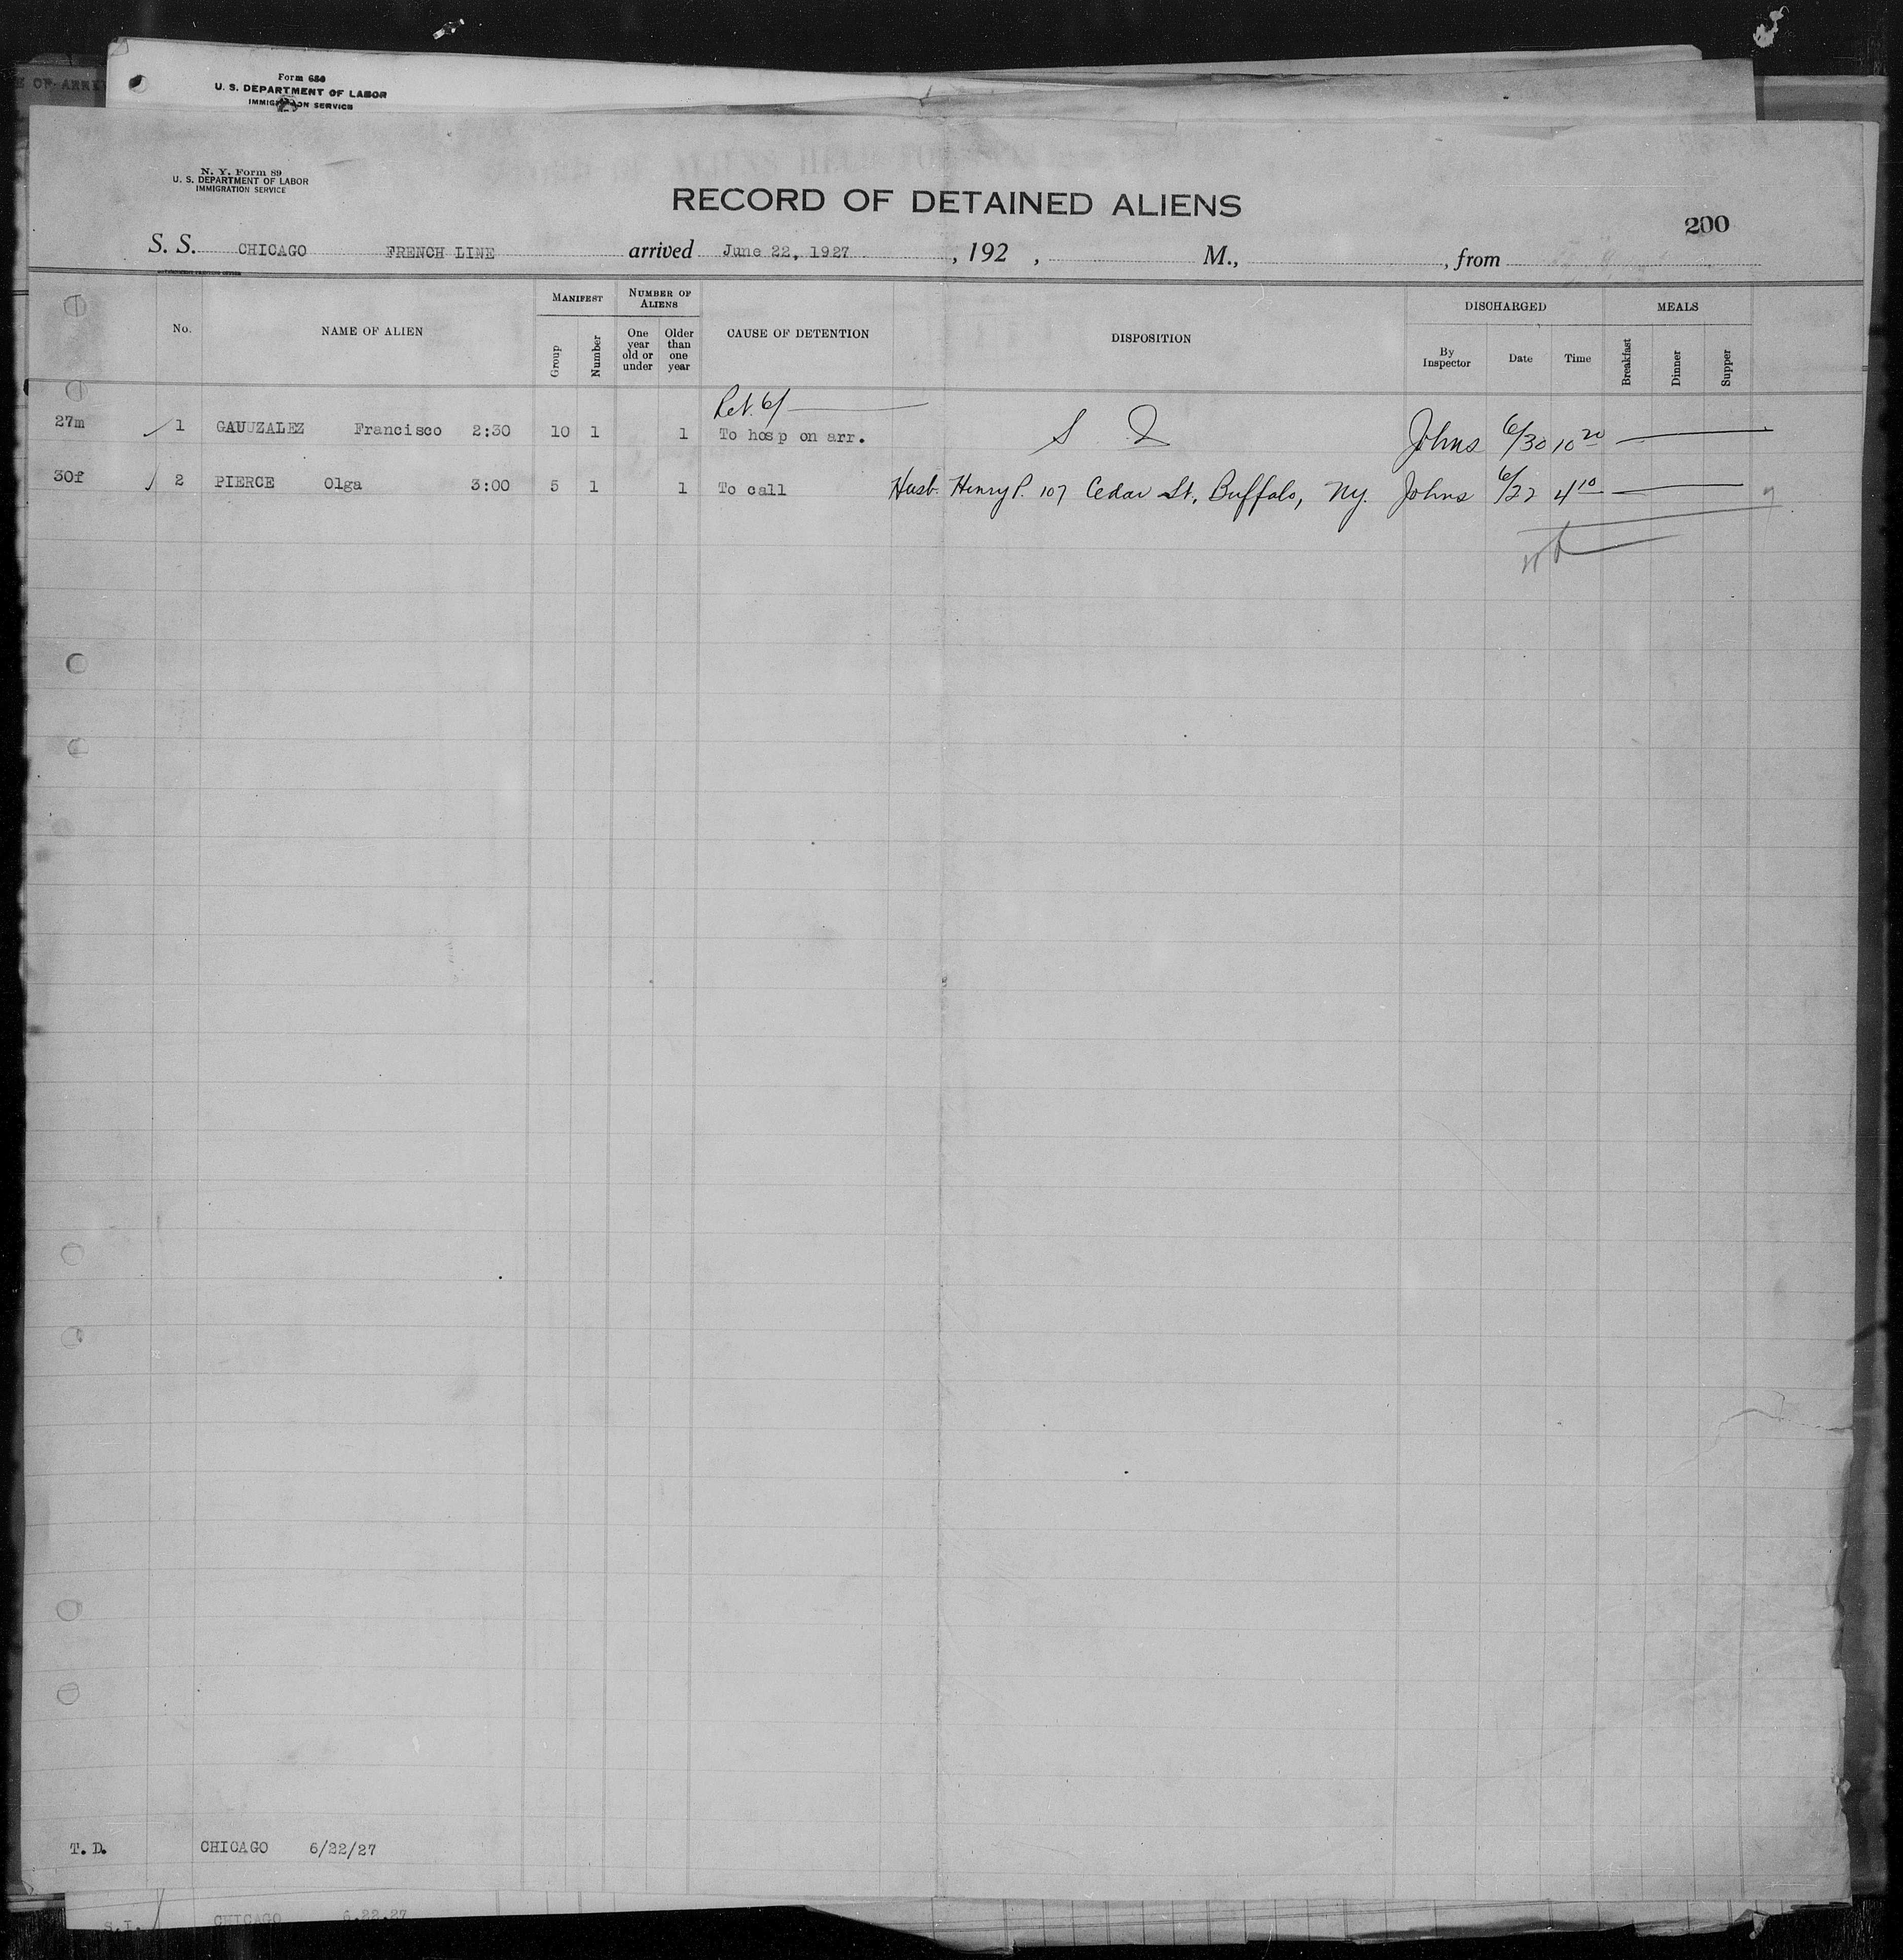 E OF ARRI
Form 630
U. S. DEPARTMENT OF LABOR
IMMIGRATION SERVICE
N. Y. Form 89
U. S. DEPARTMENT OF LABOR
IMMIGRATION SERVICE
RECORD OF DETAINED ALIENS
200
S. S. CHICAGO FRENCH LINE arrived June 22, 1927, 192 , M., , from
GOVERNMENT PRINTING OFFICE
No. NAME OF ALIEN MANIFEST Group Number NUMBER OF ALIENS One year old or under Older than one year CAUSE OF DETENTION DISPOSITION DISCHARGED By Inspector Date Time MEALS Breakfast Dinner Supper
Ret. 6/
27m 1 GAUUZALEZ Francisco 2:30 10 1 1 To hosp on arr. S I Johns 6/30 10 20
30f 2 PIERCE Olga 3:00 5 1 1 To call Husb. Henry P. 107 Cedar St, Buffalo, NY. Johns 6/22 4 10
T.D. CHICAGO 6/22/27
S.I. CHICAGO 6.22.27